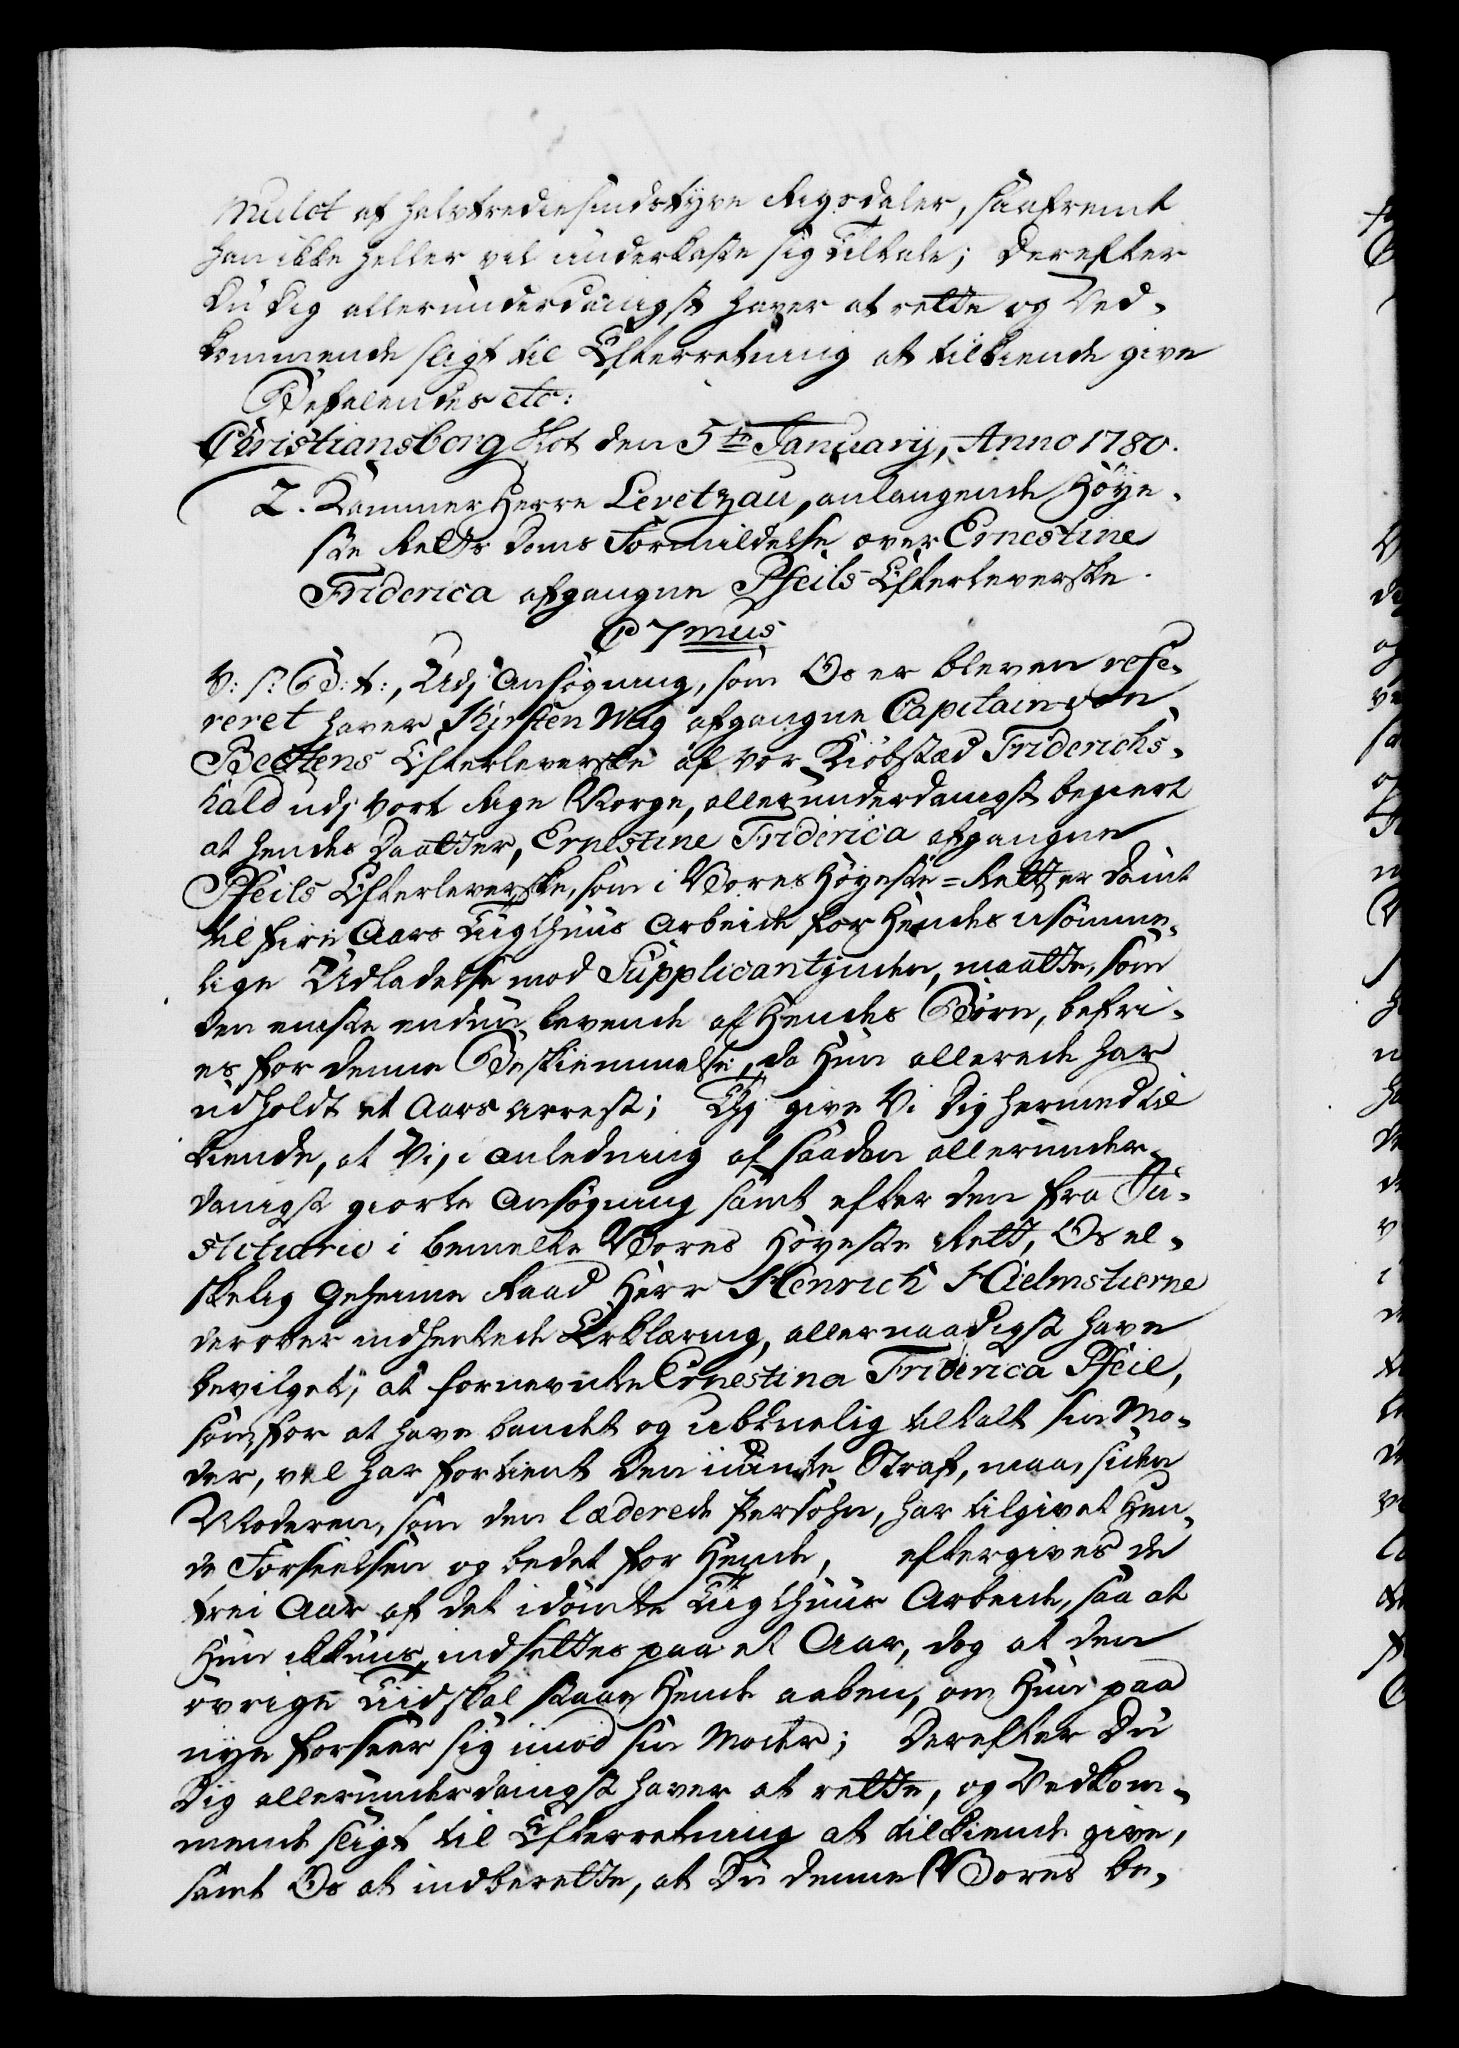 Mulct af halvtrediesindstyve Rigsdaler, saafremt
han ikke heller vil underkaste sig Tiltale; Derefter
du dig allerunderdanigst haver at rette og Ved-
kommende sligt til Efterretning at tilkiende give
Befalendes etc:
Christiansborg Slot den 5te January, Anno 1780.
2. Kammer Herre Levetzau, anlangende Höye-
ste Retts Doms Formildelse over Ernestine
Friderica afgangne Pfeils Efterleverske.
C 7mus
V: S: G: T:, Udj Ansögning, som Os er bleven refe-
reret haver Kirsten Mag afgangne Capitain von
Bechtens Efterleverske af vor Kiöbstæd Friderichs-
hald udj vort Rige Norge, allerunderdanigst begiert
at hendes Daatter, Ernestine Friderica afgangne
Pfeils Efterleverske, som i Vores Höyeste-Rett er dömt
til fire Aars Tugthuus Arbeide for Hendes usömme-
lige Udladelse mod Supplicantinden, maatte, som
den eneste endnu levende af Hendes Börn, befri-
es for denne Beskiemmelse, da Hun allerede har
udholdt et Aars Arrest; Thj give Vi Dig hermed til
kiende, at Vi, i anledning af saadan allerunder-
danigst giorte Ansögning samt efter den fra Ju-
stitiario i bemelte Vores Höyeste Rett, Os el-
skelig Geheime Raad Herr Henrich Hielmstierne
derover indhentede Erklæring, allernaadigst have
bevilget, at fornevnte Ernestina Friderica Pfeil,
som for at have bandet og utilbørlig tiltalt sin Mo-
der, vel har fortient den idömte Straf, maa, siden
Moderen, som den læderede Persohn, har tilgivet Hen-
de Forseelsen og bedet for Hende, eftergives de
trei Aar af det idömte Tugthuus Arbeide, saa at
Hun ikkuns indsettes paa et Aar, dog at den
övrige Tiid skal staae Hende aaben, om Hun paa
nye forseer sig imod sin Moder; Derefter Du
Dig allerunderdanigst haver at rette, og Vedkom-
mende sligt til Efterretning at tilkiende give,
samt Os at indberette, at Du denne Vores be-